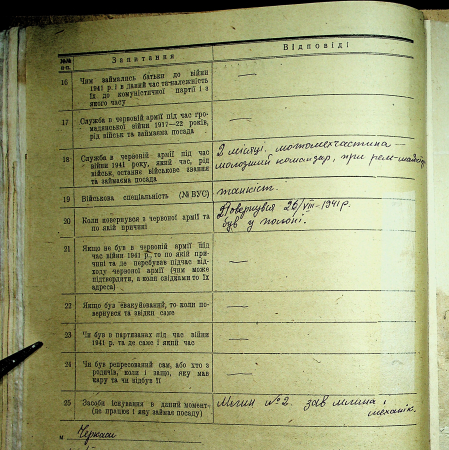 №№ п-п.
Запитання
Відповіді
16
Чим займались батьки до війни
1941 р. і в даний час та належність
їх до комуністичної партії і з
якого часу
—
17
Служба в червоній армії під час гро-
мадянської війни 1917—22 років,
рід військ та займаєма посада
—
18
Служба в червоній армії під час
війни 1941 року, який час, рід
військ, останнє військове звання
та займаєма посада
2 місяці. мотомехчастина —
молодший командир, при рем-
19
Військова спеціяльність (№ ВУС)
танкіст.
20
Коли повернувся з червоної армії та
по якій причині
Повернувся 26/VIII-1941 р.
був у полоні.
21
Якщо не був в червоній армії під
час війни 1941 р., то по якій при-
чині та де перебував підчас від-
ходу червоної армії (чим може
підтвердити, а коли свідками то їх
адреса)
—
22
Якщо був евакуйований, то коли по-
вернувся та звідки саме
—
23
Чи був в партизанах під час війни
1941 р. та де саме і який час
—
24
Чи був репресований сам, або хто з
родичів, коли і защо, яку мав
кару та чи відбув її
—
25
Засоби існування в даний момент
(де працює і яку займає посаду)
Млин №2. зав млина і
механік.
м Черкаси